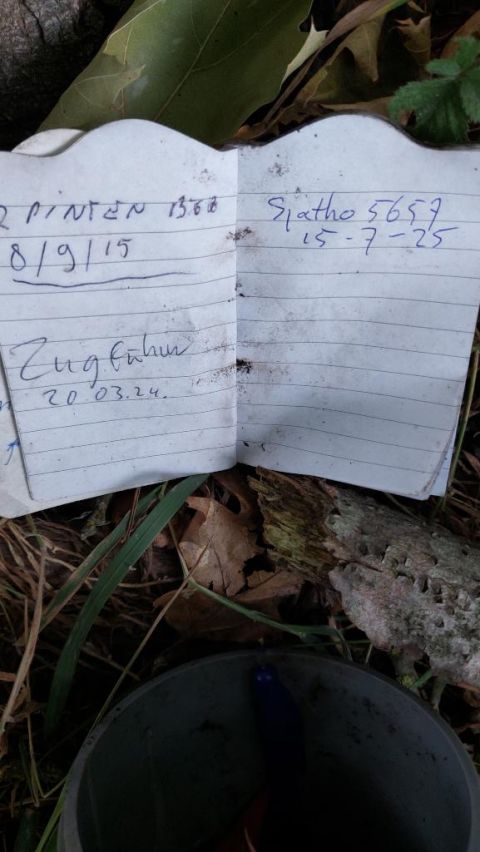 2 PINTEN 1368
8/9/15
Zugführer
20.03.24.
Sjatho 5657
15-7-25